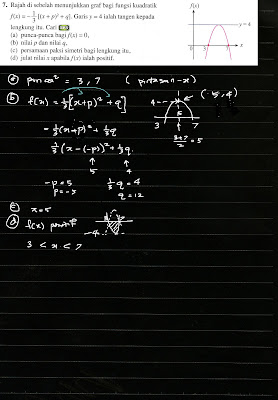 7. Rajah di sebelah menunjukkan graf bagi fungsi kuadratik
f(x) = −1/3[(x + p)² + q]. Garis y = 4 ialah tangen kepada
lengkung itu. Cari
(a) punca-punca bagi f(x) = 0,
(b) nilai p dan nilai q,
(c) persamaan paksi simetri bagi lengkung itu,
(d) julat nilai x apabila f(x) ialah positif.
f(x)
y = 4
0 3 7 x
(a) punca² = 3, 7 (pintasan-x)
(b) f(x) = ⅓[(x+p)² + q]
= ⅓(x+p)² + ⅓q
⅓(x-(-p))² + ⅓q
5 4
-p = 5 ⅓q = 4
p = -5 q = 12
(5, 4)
4
5
3 7
3+7/2 = 5
(c) x = 5
(d) f(x) positif
-4
3 < x < 7